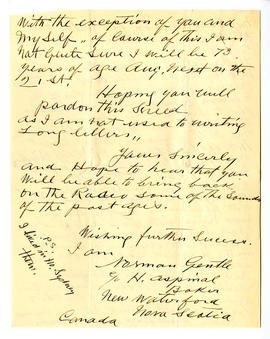 With the exception of you and
Myself, of course of this I am
Not Quite Sure I will be 73
years of age Aug. Next on the
21st.
Hoping you will
pardon this Screed
as I am not used to writing
Long letters,,
Yours Sincerly
and Hope to hear that you
Will be able to bring back
on the Radio some of the Sounds
of the past ages.
Wishing further Sucess.
I am
Norman Gentle
c/o H. Aspinal
Baker
New Waterford
Nova Scotia
Canada
P.S.
I lived in N. Sydney